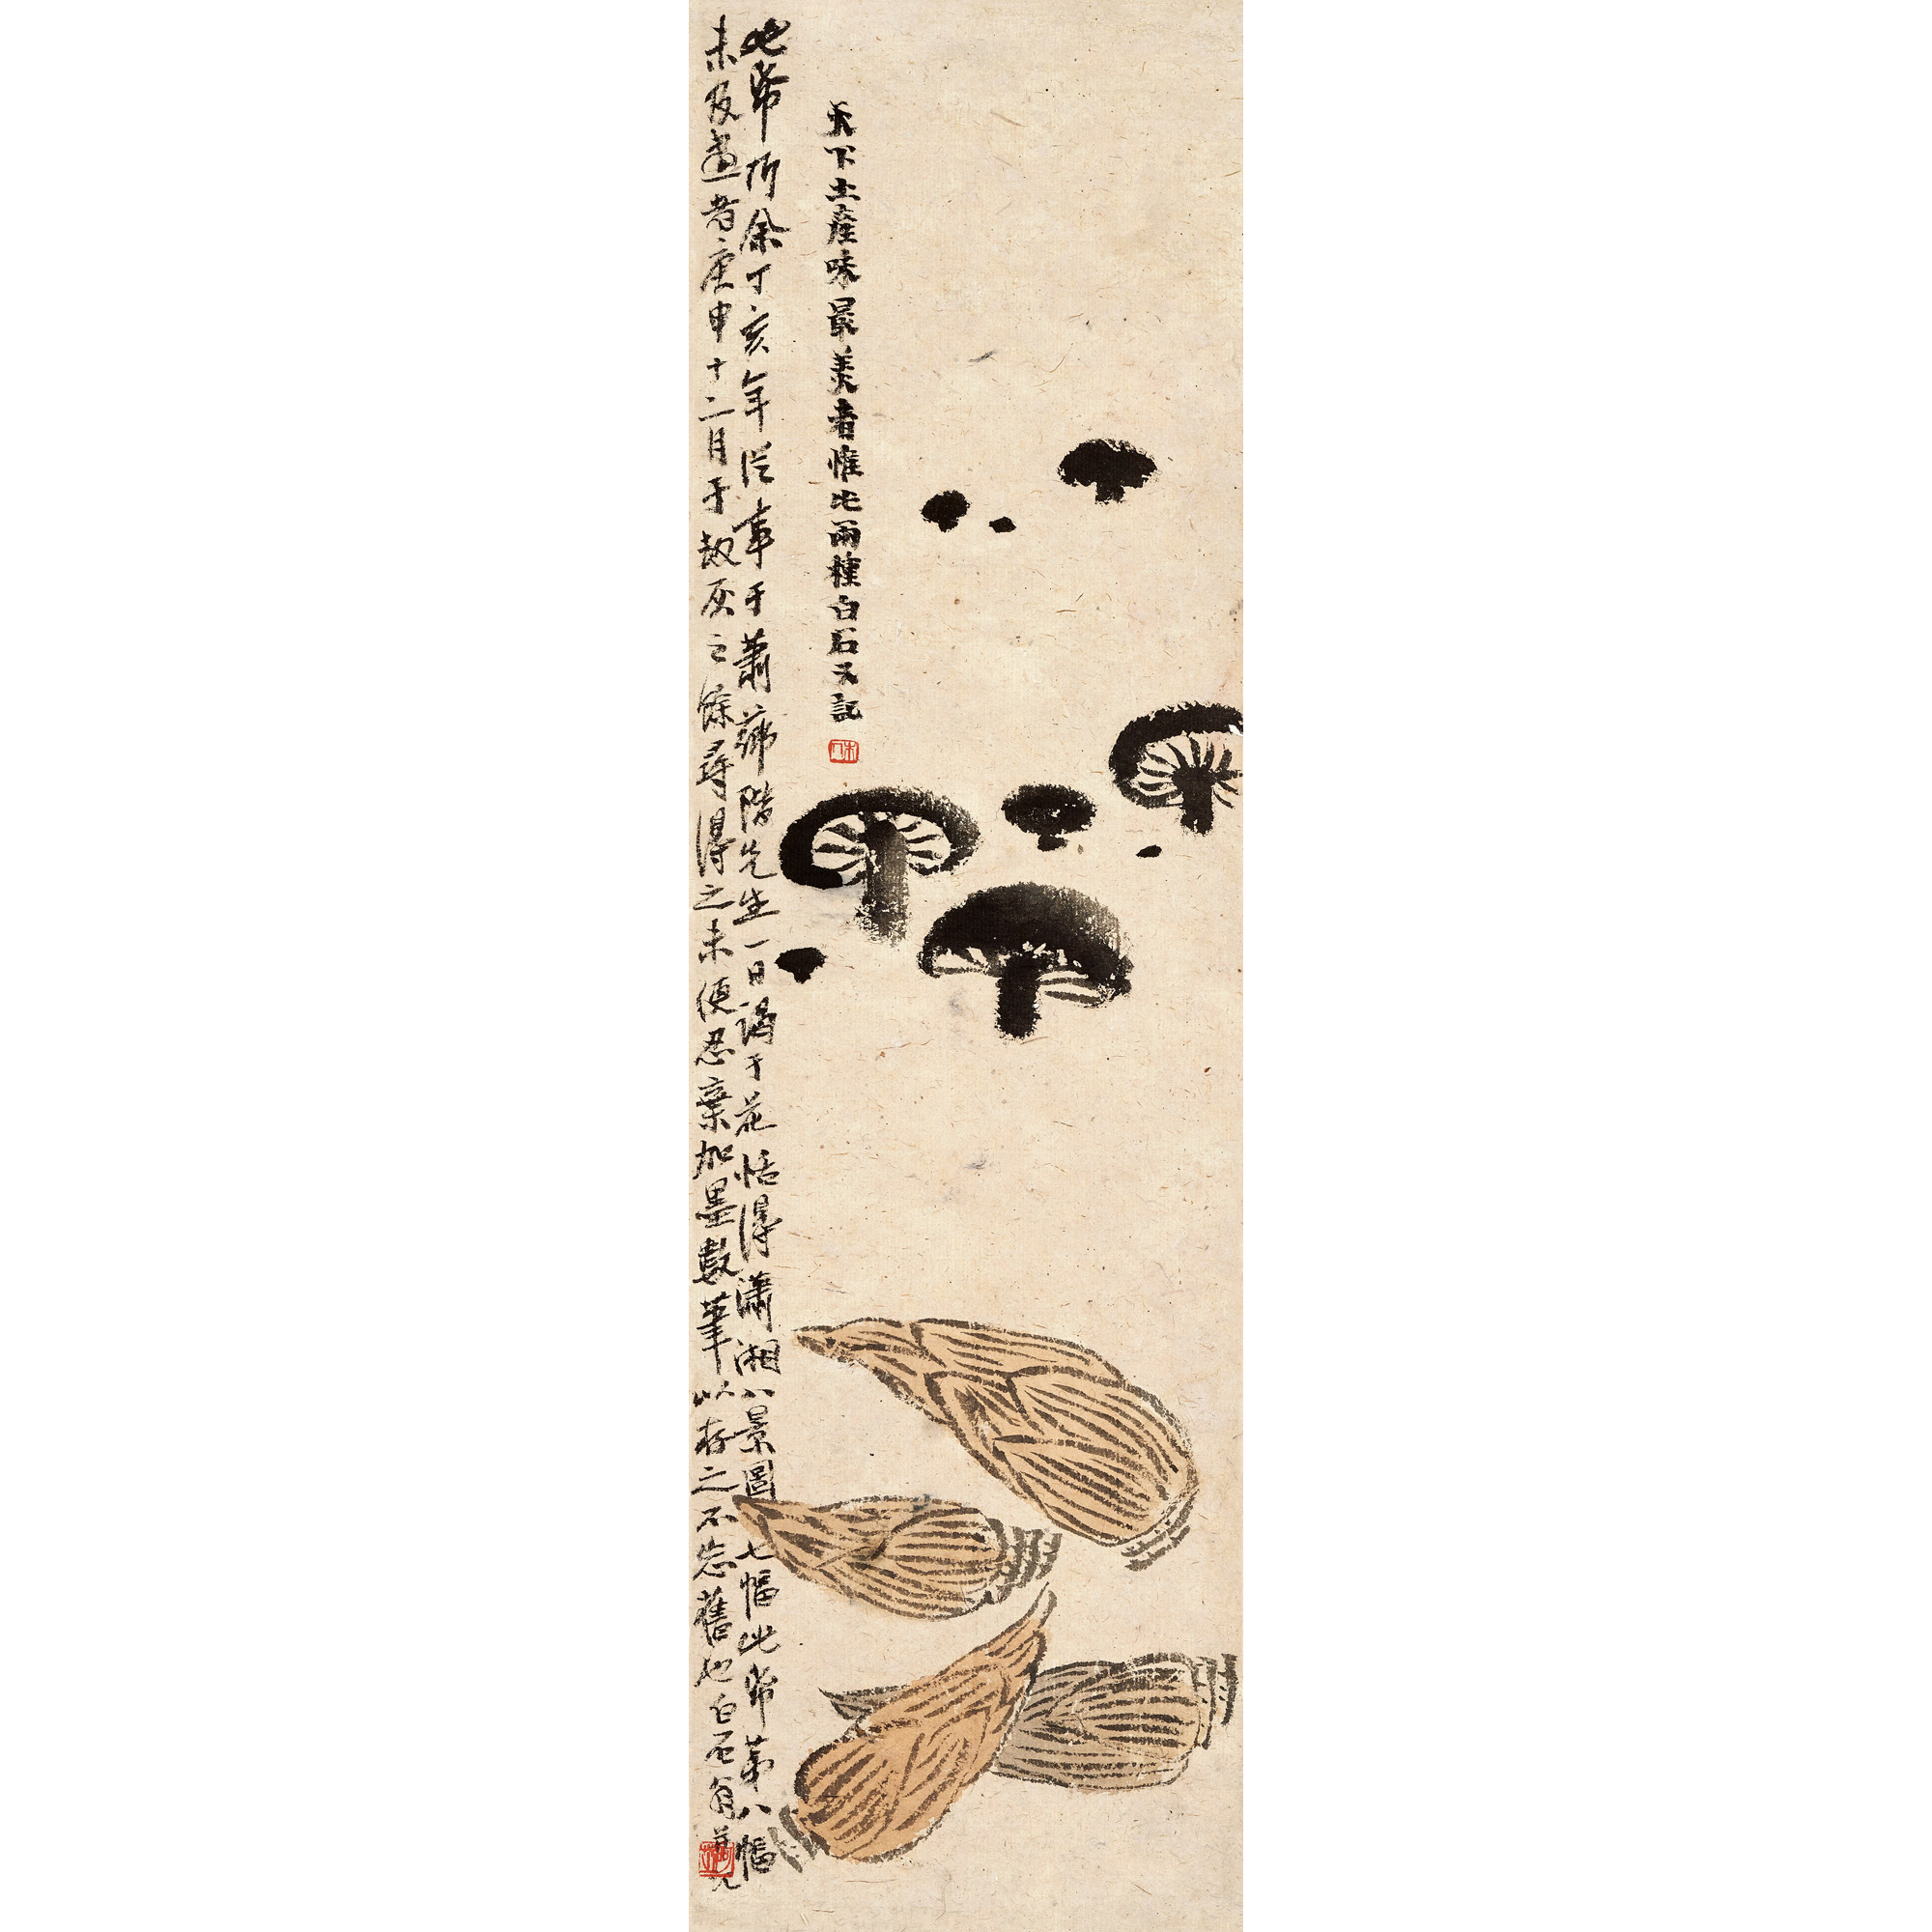 天下土產味最美者惟此兩種白石又記
木人
此帋所余丁亥年從事于蕭薌陔先生一日謁于花恬得瀟湘八景圖七幅此帋第八幅
未及畫者庚申十二月于劫灰之餘尋得之未便忍棄加墨數筆以存之不忘舊也白石翁並